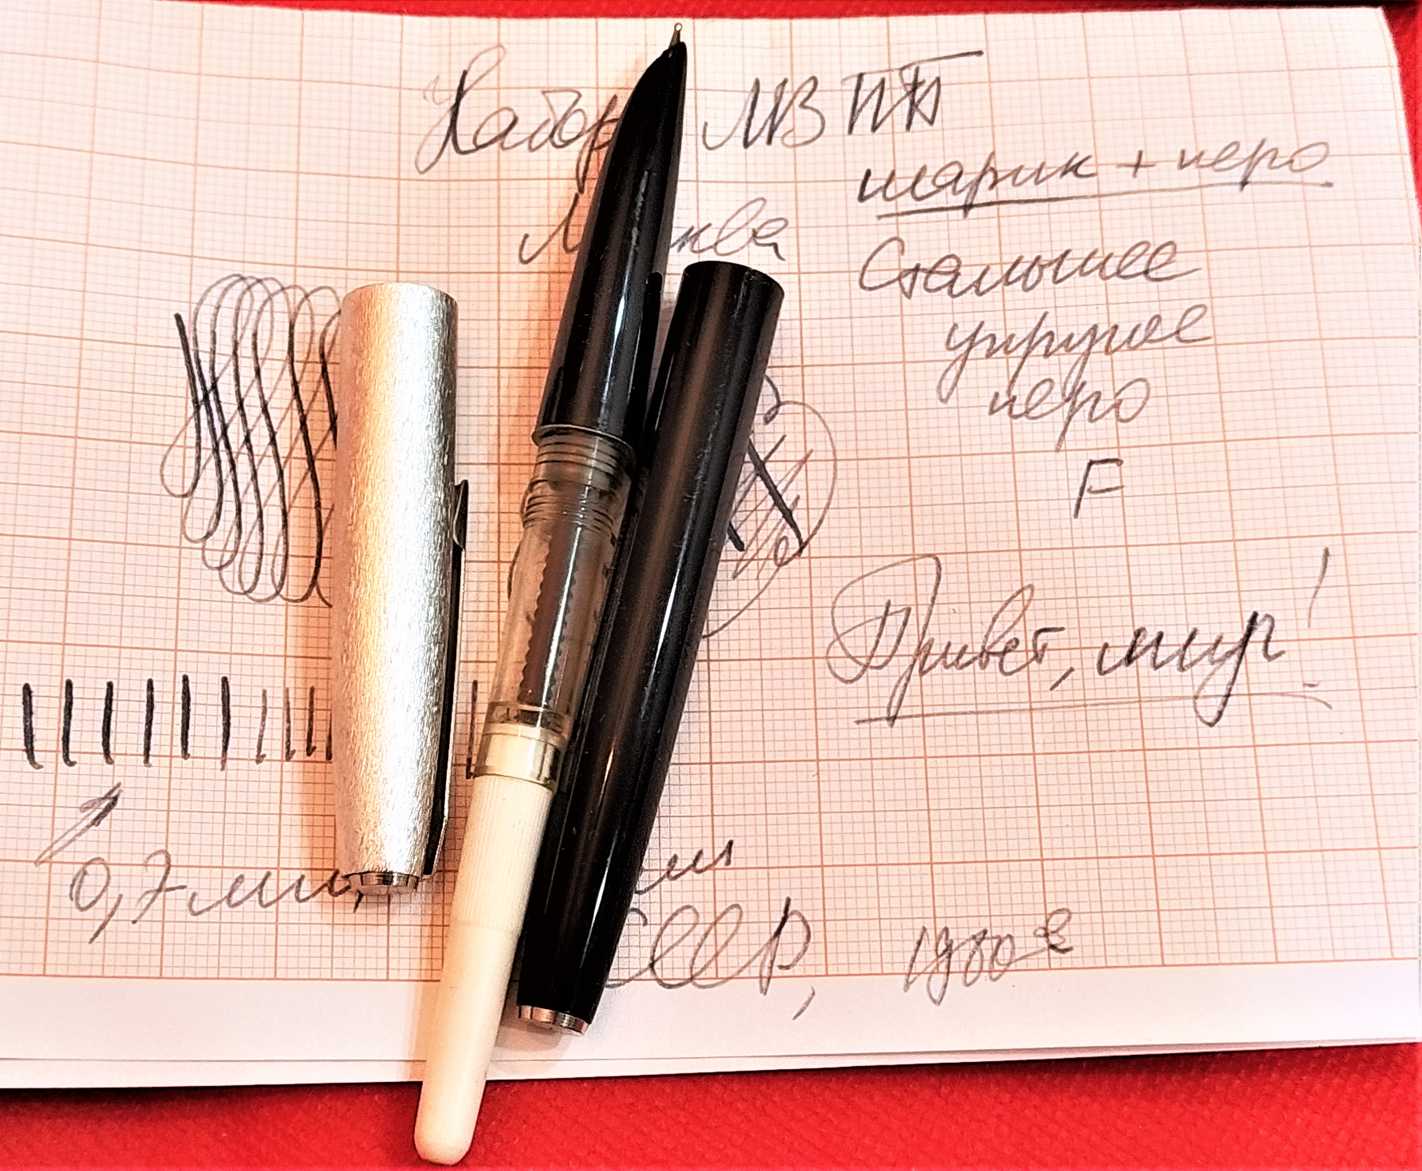 Набор МВПП
шарик + перо
Москва
Стальное
упругое
перо
F
Привет, мир!
0,7 мм,
мм
СССР, 1980 г